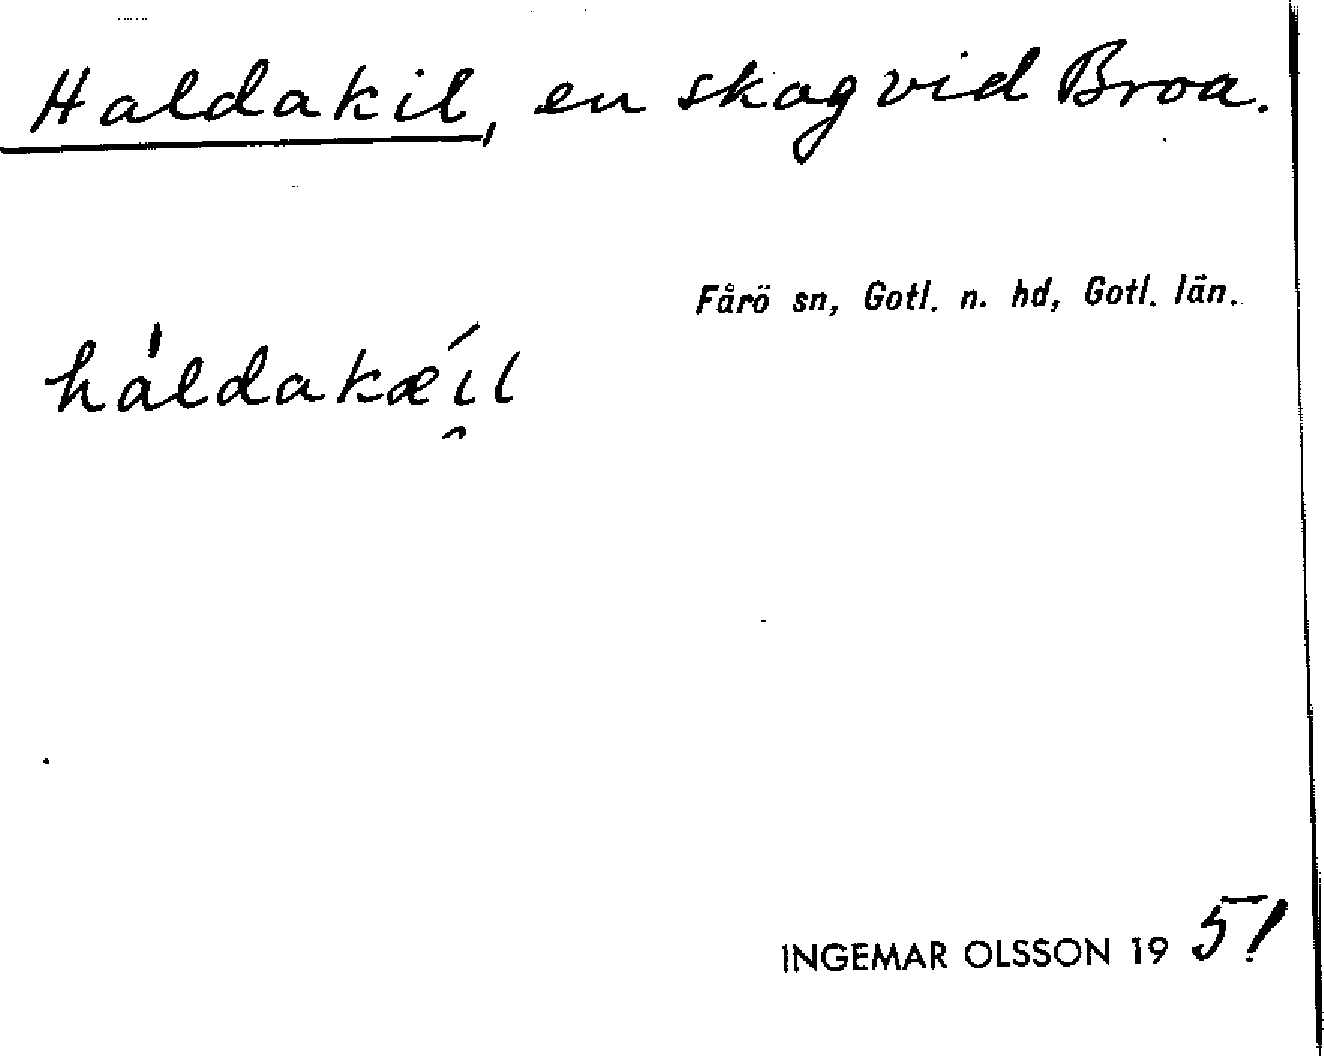 Haldakil, en skog vid Broa.
Fårö sn, Gotl. n. hd, Gotl. län.
håldakæ̂il
INGEMAR OLSSON 19 51